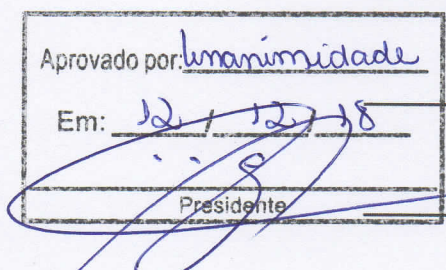 Aprovado por: Unanimidade
Em: 12 / 12 / 18
Presidente